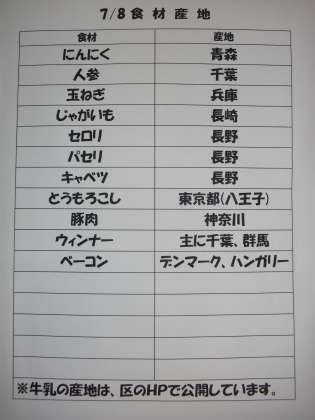 7/8 食材産地
食材 産地
にんにく 青森
人参 千葉
玉ねぎ 兵庫
じゃがいも 長崎
セロリ 長野
パセリ 長野
キャベツ 長野
とうもろこし 東京都(八王子)
豚肉 神奈川
ウィンナー 主に千葉、群馬
ベーコン デンマーク、ハンガリー
※牛乳の産地は、区のHPで公開しています。